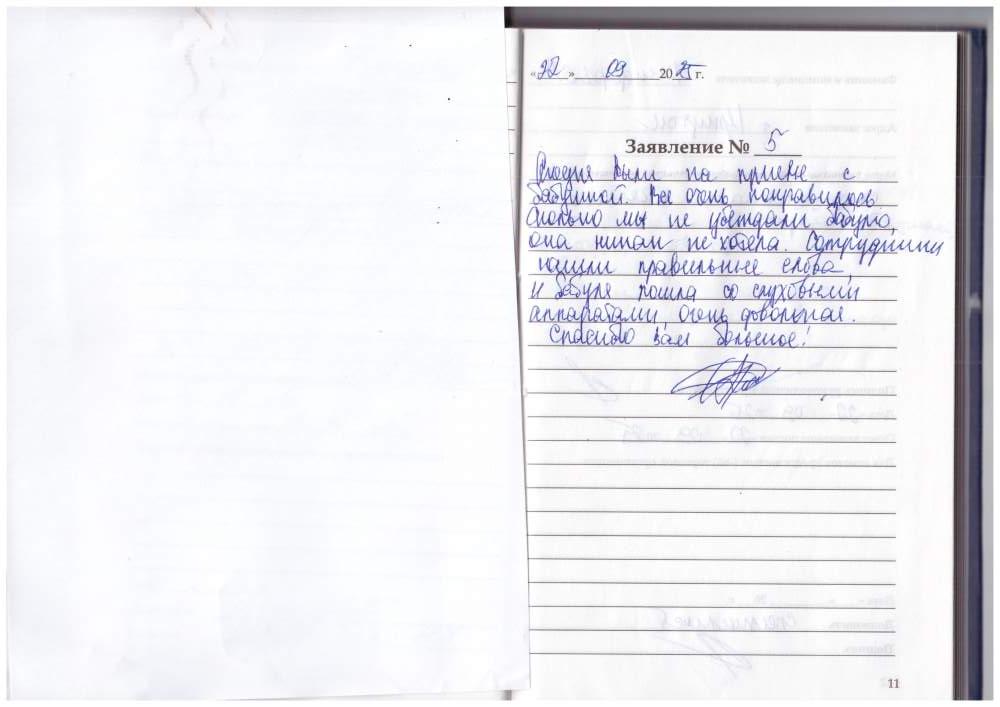 «22» 09 2025 г.
Заявление № 5
Сегодня были на приеме с
бабушкой. Все очень понравилось.
Сколько мы не убеждали бабулю,
она никак не хотела. Сотрудники
нашли правильные слова,
и бабуля пошла со слуховыми
аппаратами, очень довольная.
Спасибо вам большое!
11